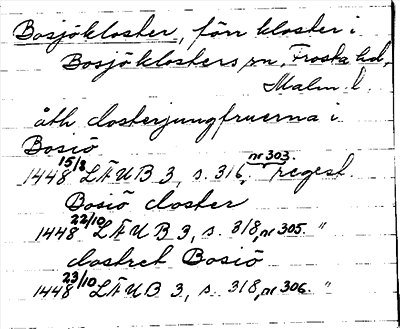 Bosjökloster, förr kloster i
Bosjöklosters sn, Frosta hd,
Malm. l.
åth closterjungfruerna i
Bosiö
1448 15/3 LÄUB 3, s. 316, nr 303. regest.
Bosiö closter
1448 22/10 LÄUB 3, s. 318, nr 305. "
clostret Bosiö
1448 23/10 LÄUB 3, s. 318, nr 306. "